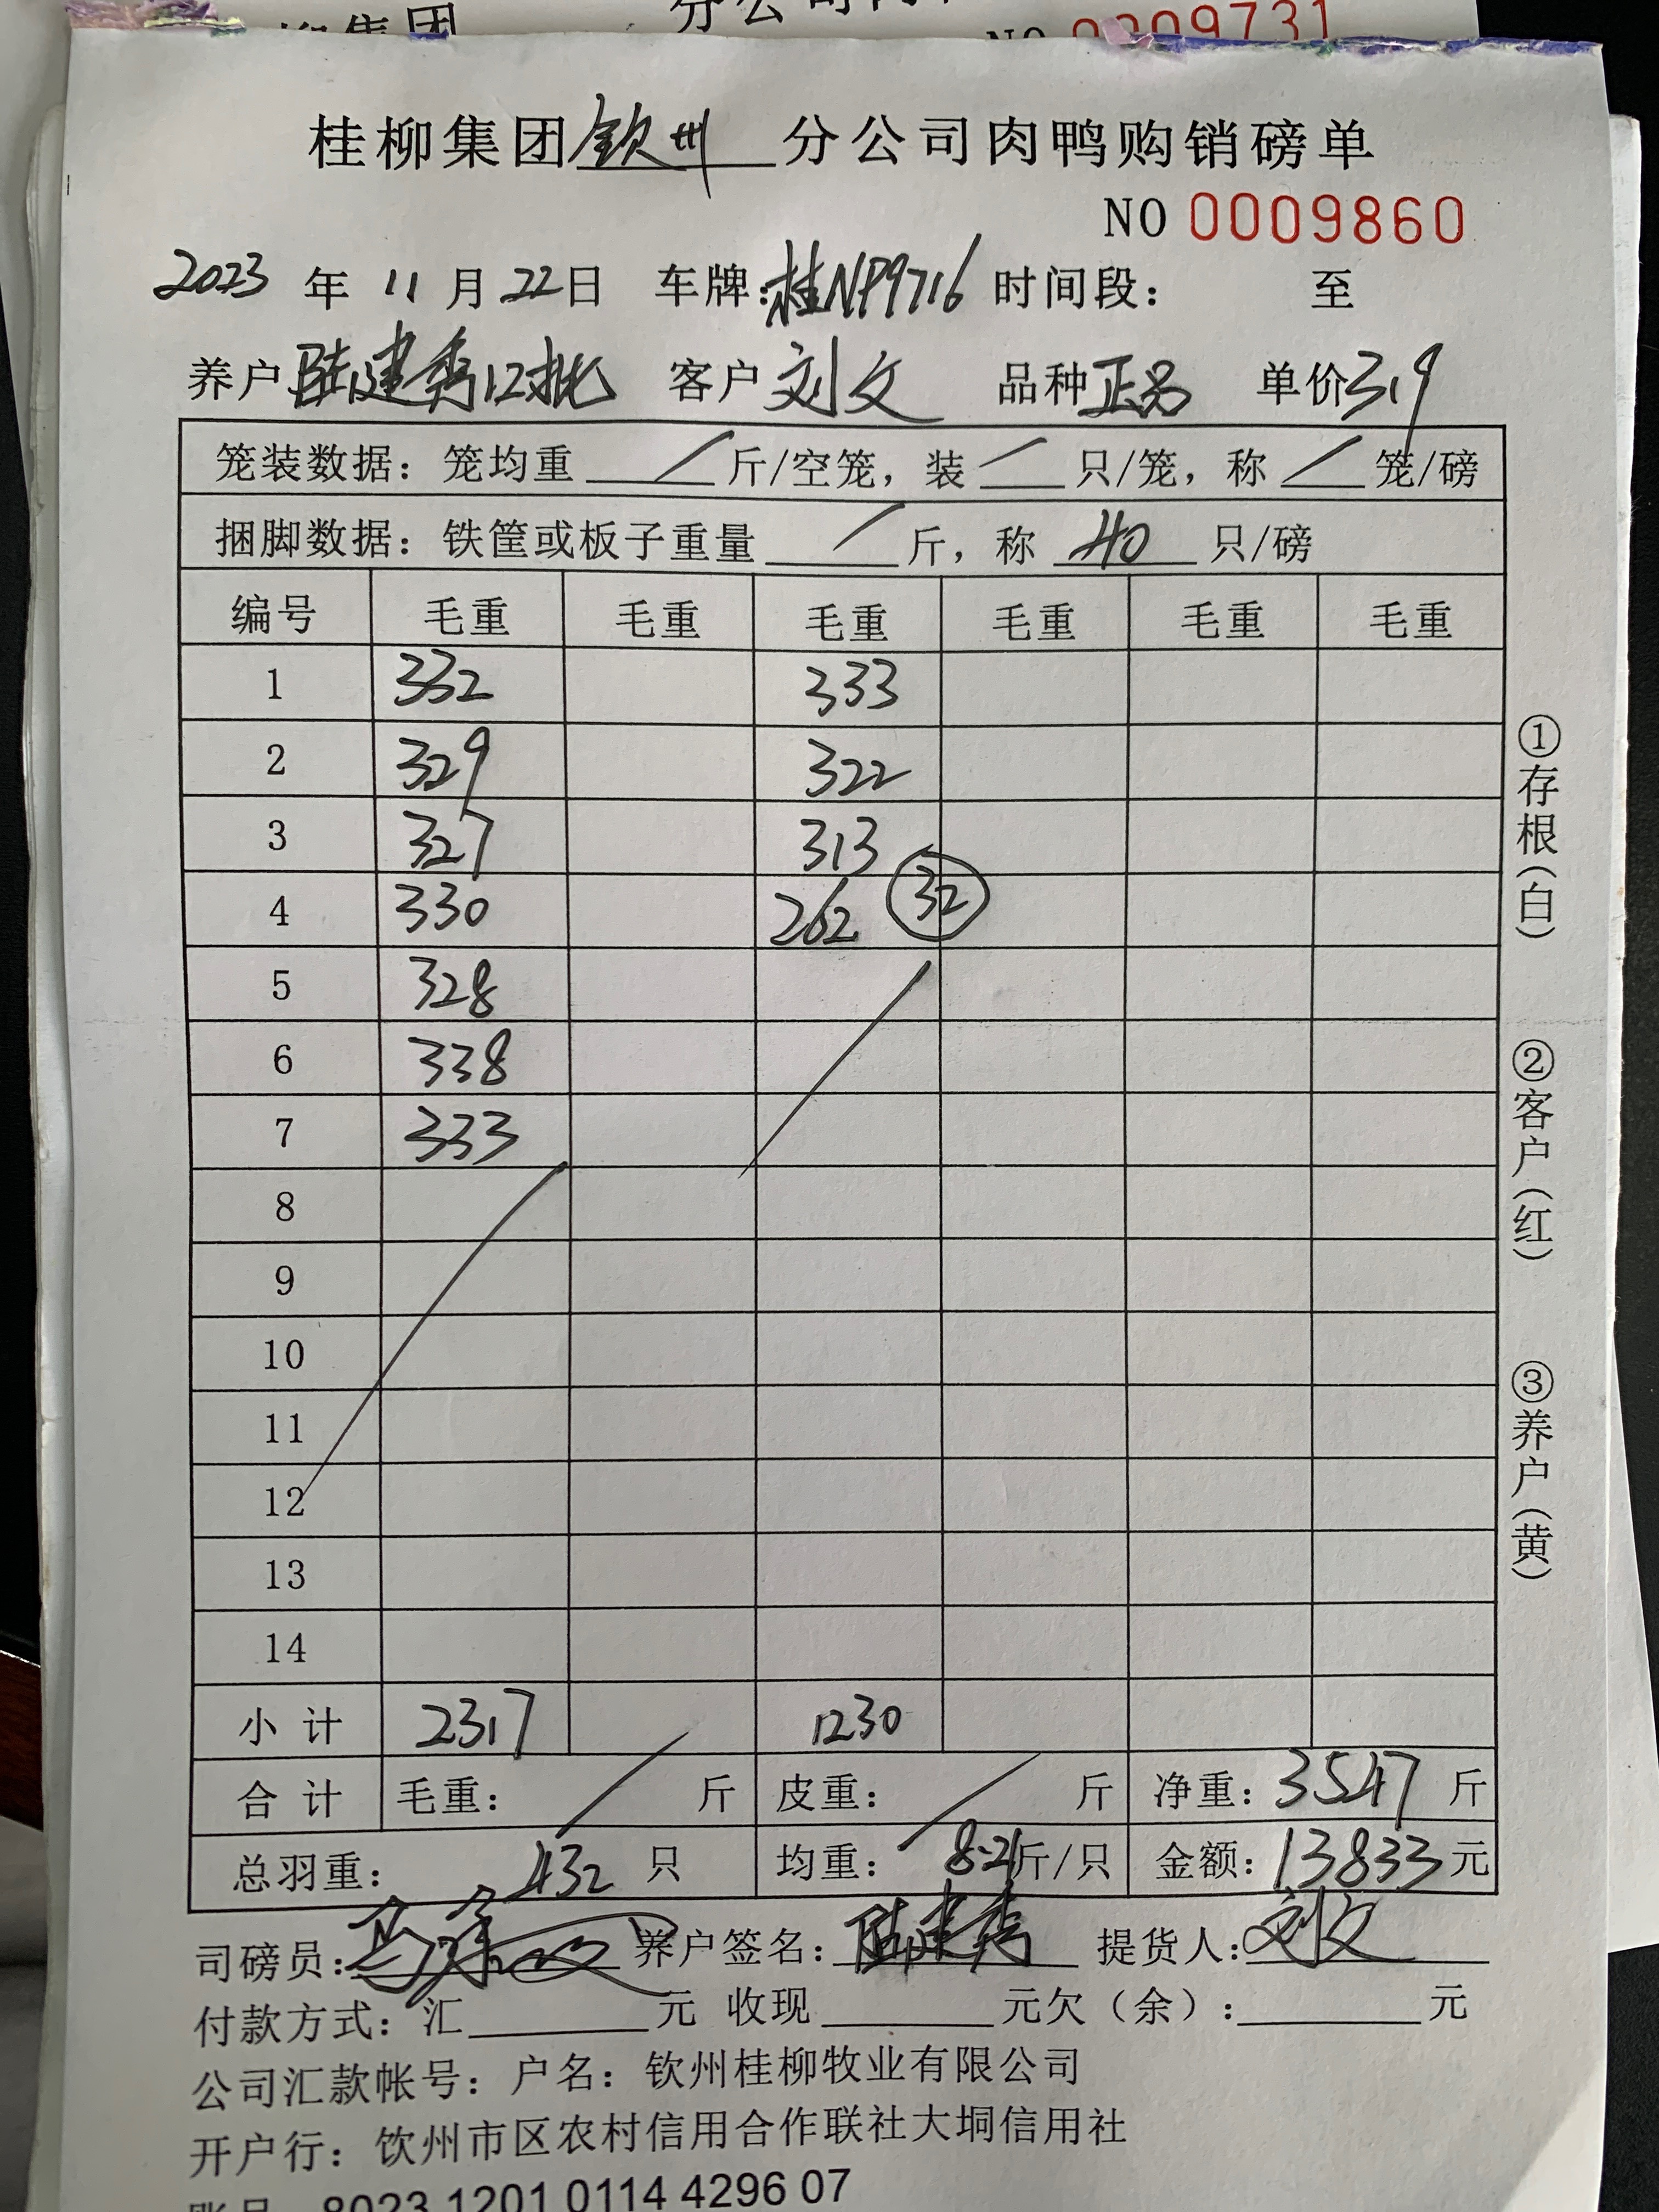 NO 0009731
桂柳集团钦州分公司肉鸭购销磅单
NO 0009860
2023 年 11 月 22 日 车牌：桂NP9716 时间段： 至
养户 陆建秀12批 客户 刘文 品种 正品 单价 3.9
笼装数据：笼均重 / 斤/空笼，装 / 只/笼，称 / 笼/磅
捆脚数据：铁筐或板子重量 / 斤，称 40 只/磅
编号 毛重 毛重 毛重 毛重 毛重 毛重
1 332 333
2 329 322
3 327 313
4 330 262 32
5 328
6 338
7 333
8
9
10
11
12
13
14
小计 2317 1230
合计 毛重： / 斤 皮重： / 斤 净重：3547 斤
总羽重： 432 只 均重： 8.21斤/只 金额：13833元
司磅员： 养户签名：陆建秀 提货人：刘文
付款方式：汇 元 收现 元欠（余）： 元
公司汇款帐号：户名：钦州桂柳牧业有限公司
开户行：钦州市区农村信用合作联社大垌信用社
8023 1201 0114 4296 07
①存根（白）
②客户（红）
③养户（黄）